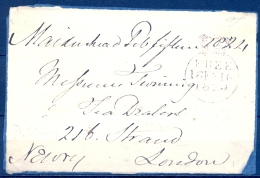 Maidenhead Feb fifteen 1834
Messieurs Twining
Tea Dealers
216 Strand
London
FREE